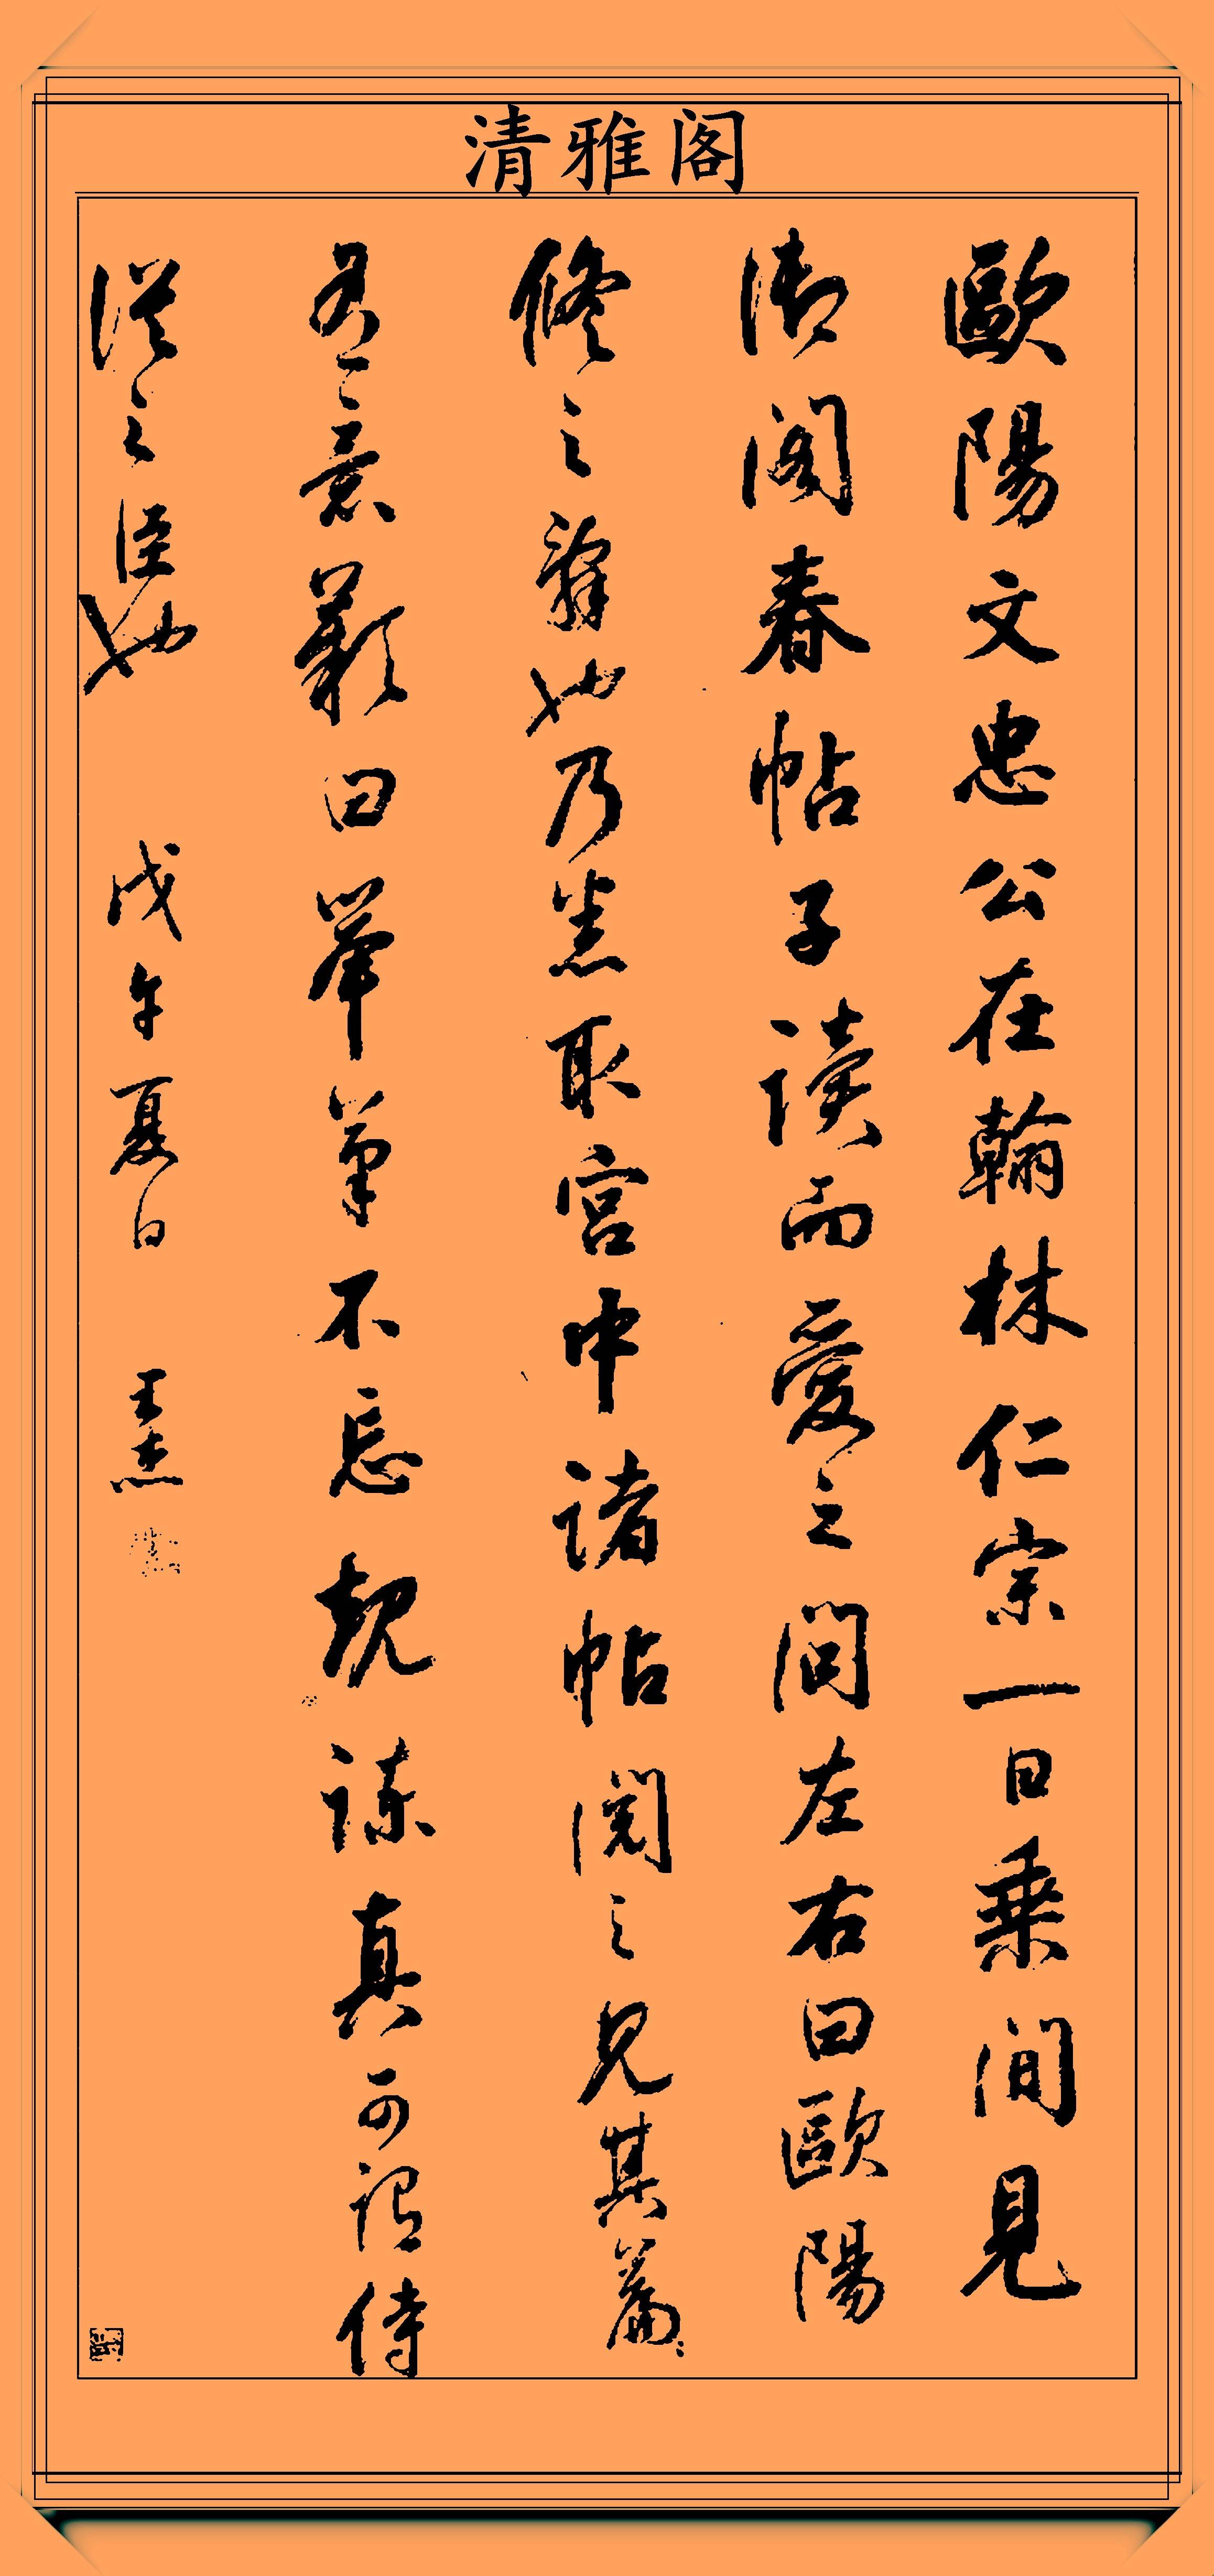 清雅阁
歐陽文忠公在翰林仁宗一日乘間見
御閣春帖子讀而愛之問左右曰歐陽
修之辭也乃悉取宮中諸帖閱之見其篇々
有意歎曰舉筆不忘規諫真可謂侍
從之臣也 戊午夏日 王杰